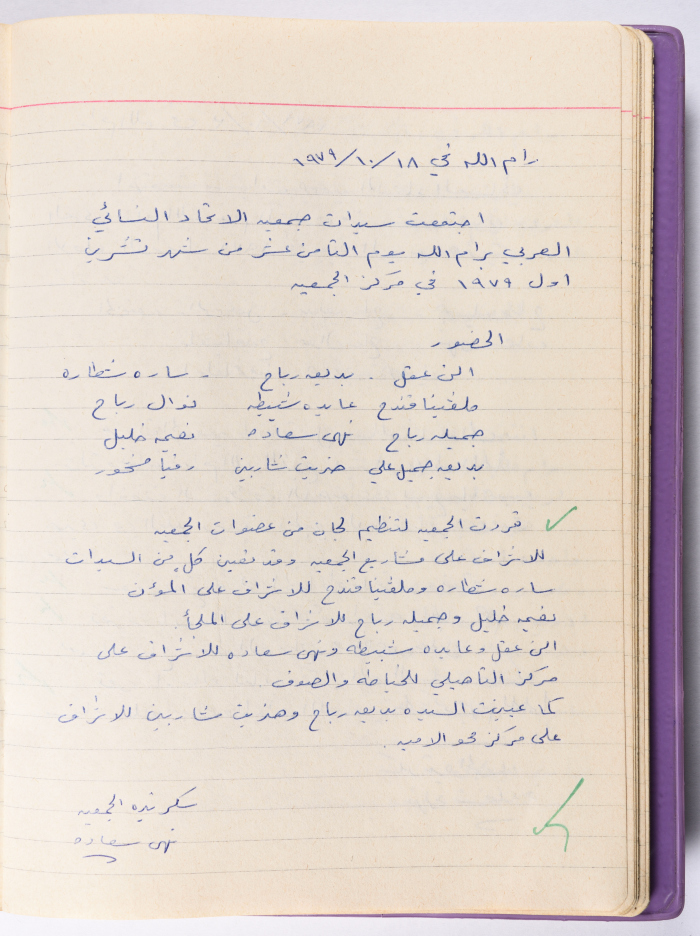 رام الله في ١٨/١٠/١٩٧٩
اجتمعت سيدات جمعيه الاتحاد النسائي
العربي برام الله يوم الثامن عشر من شهر تشرين
اول ١٩٧٩ في مركز الجمعيه
الحضور
الن عقل . بديعه رباح . ساره شطاره
ملفينا قندح عايده شبيطه نوال رباح
جميله رباح نهى سعاده نعيمه خليل
بديعه جميل علي هنريت شاربين رفيا منخور
قررت الجمعيه لتنظيم لجان من عضوات الجمعيه
للاشراف على مشاريع الجمعيه وقد تعين كل من السيدات
ساره شطاره وملفينا قندح للاشراف على المؤن
نعيمه خليل وجميله رباح للاشراف على الملجأ.
الن عقل وعايده شبيطه ونهى سعاده للاشراف على
مركز التأهيلي للخياطه والصوف
كما عينت السيده بديعه رباح وهنريت شاربين للاشراف
على مركز محو الاميه.
سكرتيره الجمعيه
نهى سعاده